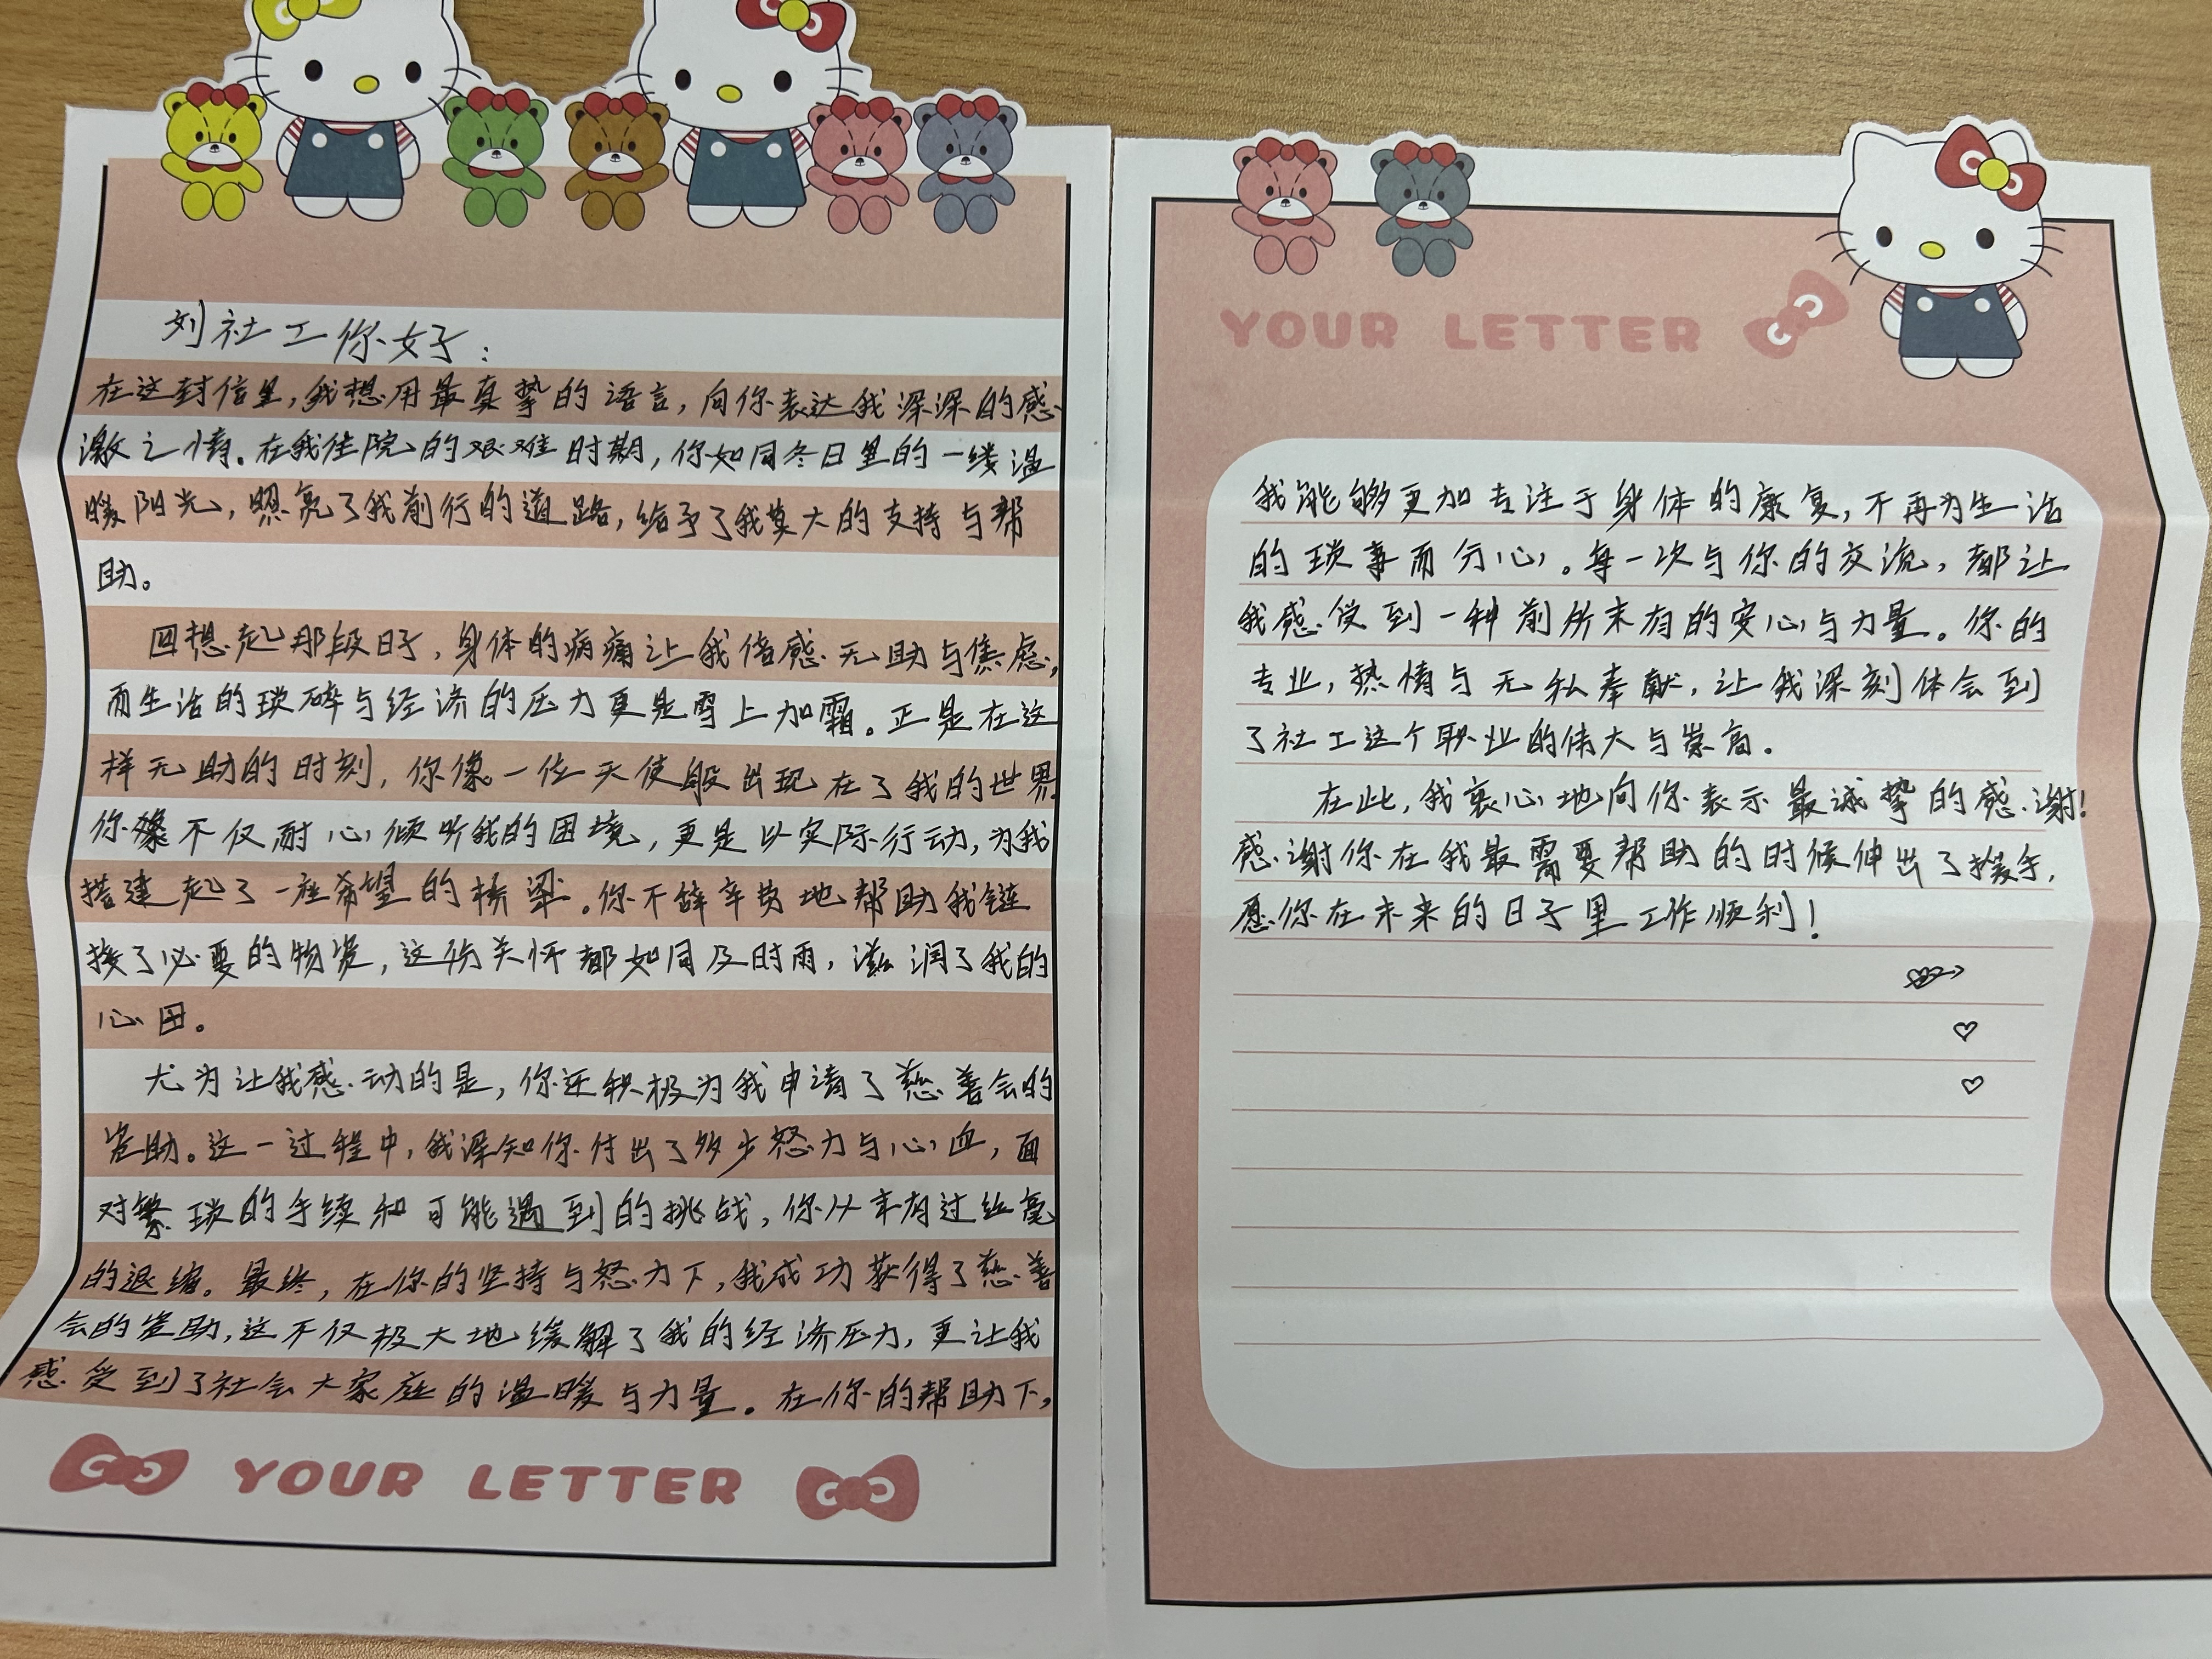 刘社工你好：
在这封信里，我想用最真挚的语言，向你表达我深深的感
激之情。在我住院的艰难时期，你如同冬日里的一缕温
暖阳光，照亮了我前行的道路，给予了我莫大的支持与帮
助。
回想起那段日子，身体的病痛让我倍感无助与焦虑，
而生活的琐碎与经济的压力更是雪上加霜。正是在这
样无助的时刻，你像一位天使般出现在了我的世界
你不仅耐心倾听我的困境，更是以实际行动，为我
搭建起了一座希望的桥梁。你不辞辛费地帮助我链
接了必要的物资，这份关怀都如同及时雨，滋润了我的
心田。
尤为让我感动的是，你还积极为我申请了慈善会的
资助。这一过程中，我深知你付出了多少努力与心血，面
对繁琐的手续和可能遇到的挑战，你从未有过丝毫
的退缩。最终，在你的坚持与努力下，我成功获得了慈善
会的资助，这不仅极大地缓解了我的经济压力，更让我
感受到了社会大家庭的温暖与力量。在你的帮助下，
YOUR LETTER
YOUR LETTER
我能够更加专注于身体的康复，不再为生活
的琐事而分心。每一次与你的交流，都让
我感受到一种前所未有的安心与力量。你的
专业，热情与无私奉献，让我深刻体会到
了社工这个职业的伟大与崇高。
在此，我衷心地向你表示最诚挚的感谢！
感谢你在我最需要帮助的时候伸出了援手，
愿你在未来的日子里工作顺利！